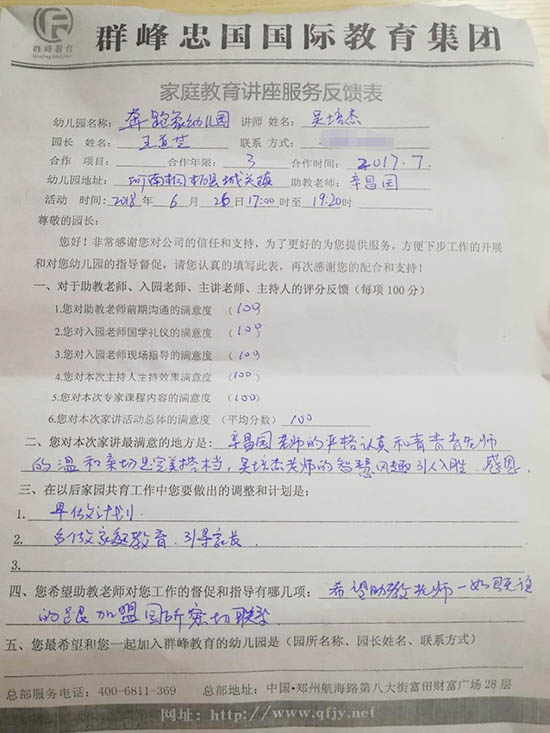 群峰教育
群峰忠国国际教育集团
家庭教育讲座服务反馈表
幼儿园名称：奔跑家幼儿园 讲师 姓名：吴培杰
园长 姓名：王道芝 联系 方式：
合作 项目： 合作年限：3 合作时间：2017.7
幼儿园地址：河南桐柏县城关镇 助教老师：辛昌园
活动 时间：2018年 6月 26日17:00时至 19:20时
尊敬的园长：
您好！非常感谢您对公司的信任和支持，为了更好的为您提供服务，方便下步工作的开展
和对您幼儿园的指导督促，请您认真的填写此表，再次感谢您的配合和支持！
一、对于助教老师、入园老师、主讲老师、主持人的评分反馈（每项 100 分）
1.您对助教老师前期沟通的满意度 （100
2.您对入园老师国学礼仪的满意度 （100
3.您对入园老师现场指导的满意度 （100
4.您对本次主持人主持效果满意度 （100）
5.您对本次专家课程内容的满意度 （100）
6.您对本次家讲活动总体的满意度 （平均分数）100
二、您对本次家讲最满意的地方是：辛昌园老师的严格认真和青青老师
的温和亲切是完美搭档，吴培杰老师的智慧风趣引人入胜．感恩．
三、在以后家园共育工作中您要做出的调整和计划是：
1. 早做计划．
2. 多做家庭教育．引导家长．
3.
四、您希望助教老师对您工作的督促和指导有哪几项：希望助教老师一如既往
的跟加盟园所密切联系
五、您最希望和您一起加入群峰教育的幼儿园是（园所名称、园长姓名、联系方式）
总部服务电话：400-6811-369 总部地址：中国·郑州航海路第八大街富田财富广场 28 层
网址：http://www.qfjy.net